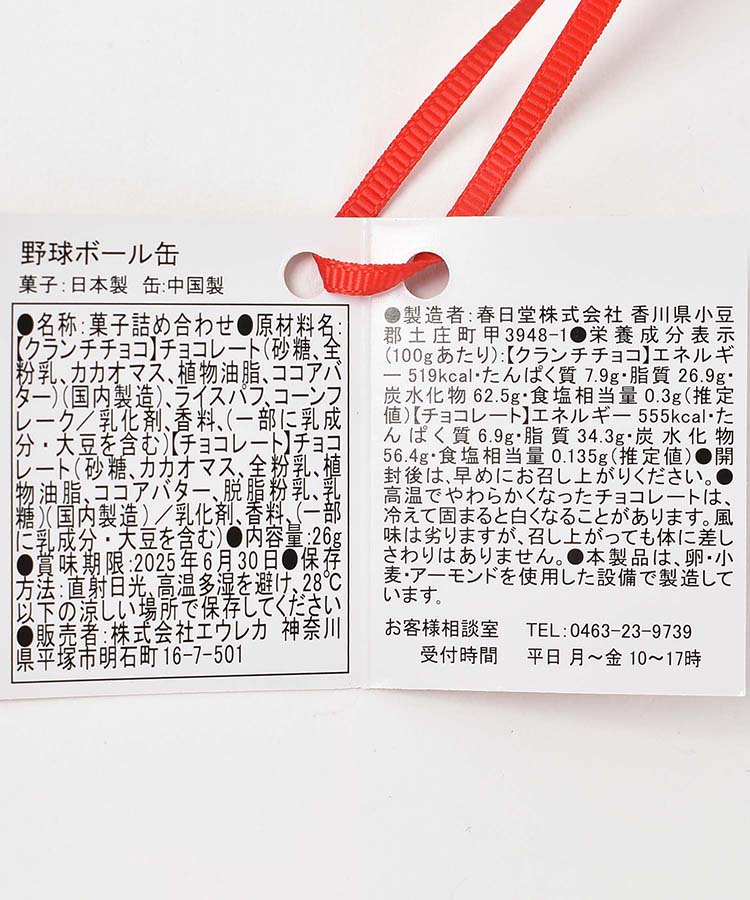 野球ボール缶
菓子:日本製 缶:中国製
●名称:菓子詰め合わせ●原材料名:
【クランチチョコ】チョコレート(砂糖、全
粉乳、カカオマス、植物油脂、ココアバ
ター)(国内製造)、ライスパフ、コーンフ
レーク／乳化剤、香料、(一部に乳成
分・大豆を含む)【チョコレート】チョコ
レート(砂糖、カカオマス、全粉乳、植
物油脂、ココアバター、脱脂粉乳、乳
糖)(国内製造)／乳化剤、香料、(一部
に乳成分・大豆を含む)●内容量:26g
●賞味期限:2025年6月30日●保存
方法:直射日光、高温多湿を避け、28℃
以下の涼しい場所で保存してください
●販売者:株式会社エウレカ 神奈川
県平塚市明石町16-7-501
●製造者:春日堂株式会社 香川県小豆
郡土庄町甲3948-1●栄養成分表示
(100gあたり):【クランチチョコ】エネルギ
ー 519kcal・たんぱく質 7.9g・脂質 26.9g・
炭水化物 62.5g・食塩相当量 0.3g(推定
値)【チョコレート】エネルギー 555kcal・た
んぱく質 6.9g・脂質 34.3g・炭水化物
56.4g・食塩相当量 0.135g(推定値)●開
封後は、早めにお召し上がりください。●
高温でやわらかくなったチョコレートは、
冷えて固まると白くなることがあります。風
味は劣りますが、召し上がっても体に差し
さわりはありません。●本製品は、卵・小
麦・アーモンドを使用した設備で製造して
います。
お客様相談室 TEL:0463-23-9739
受付時間 平日 月～金 10～17時